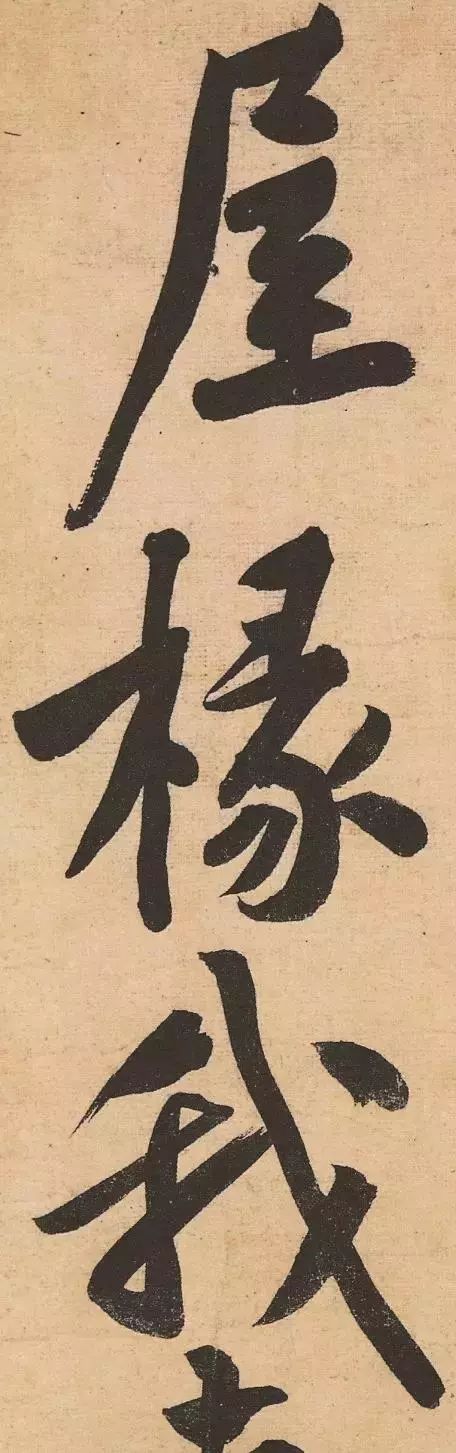 屋椽我